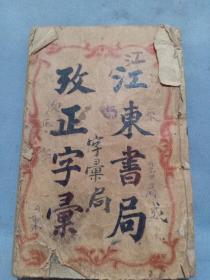 江
江東書局
字彙局
攷正字彙